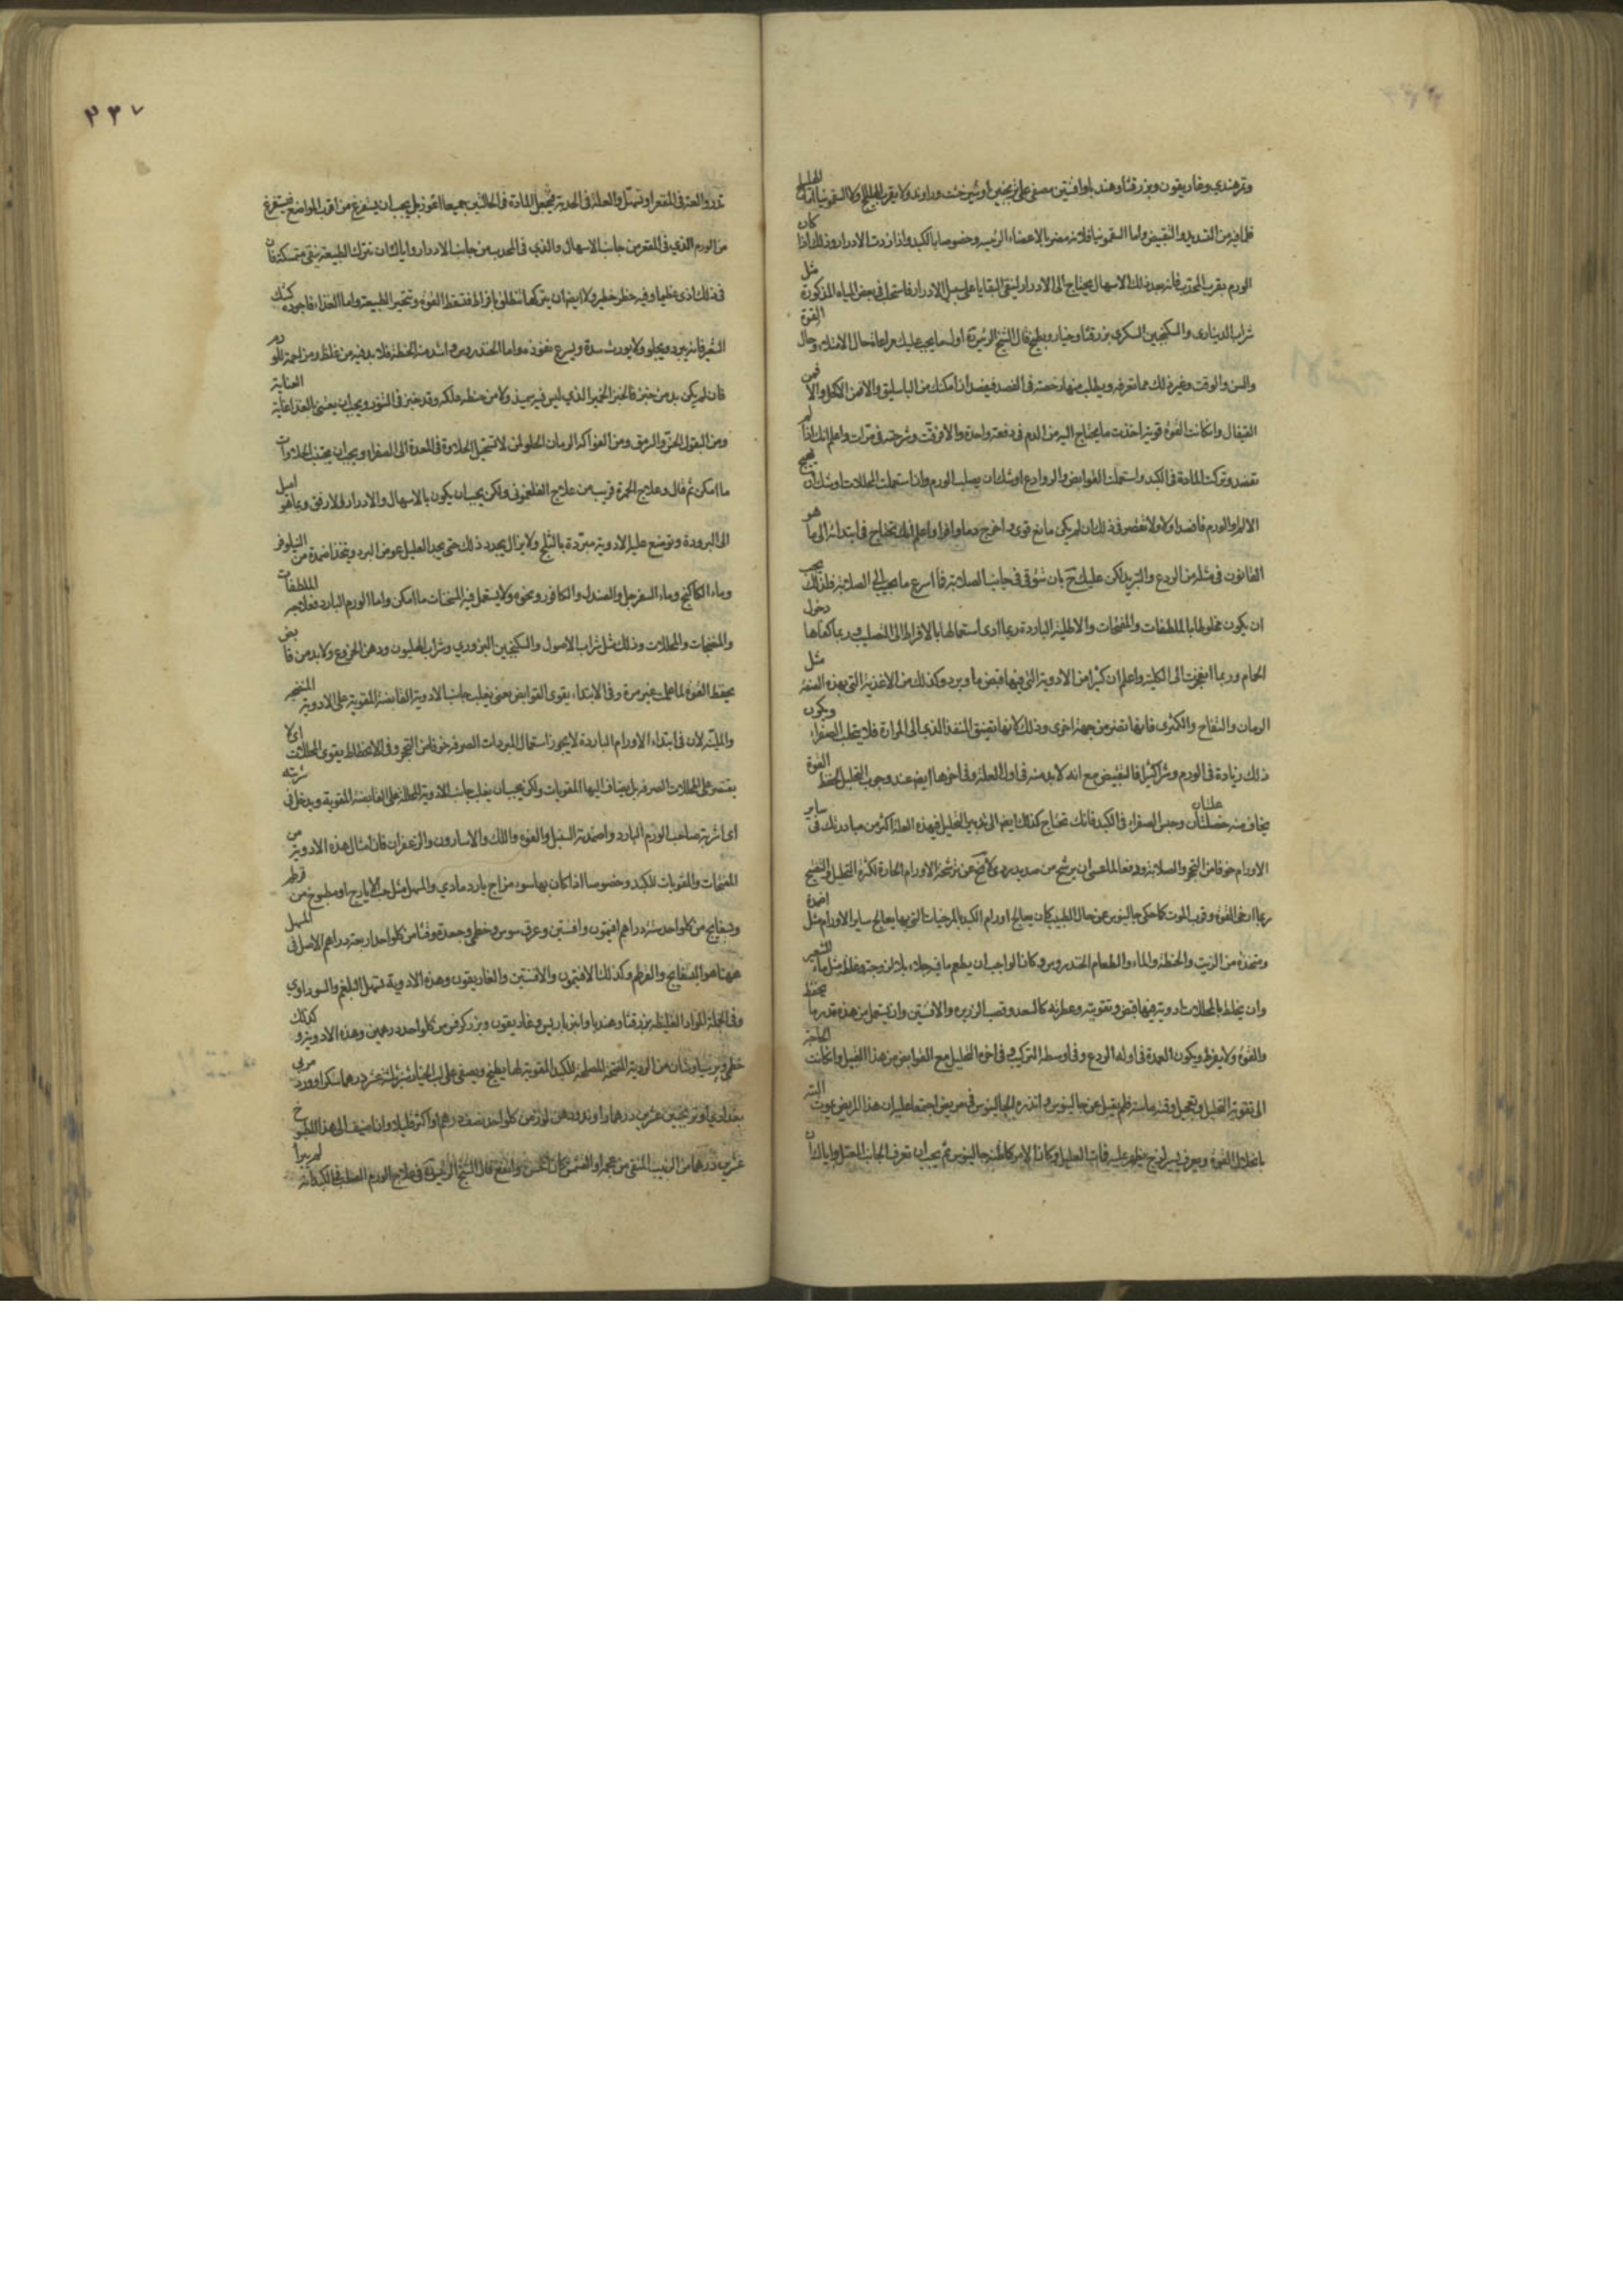 وتمر هندي وغاريقون وبزر قثا وهندبا وافسنتين مصفى على ترنجبين او شيرخشت وراوند ولا يقرب الهليلج ولا السقمونيا اما الهليلج
فلما فيه من التسديد والتقبيض واما السقمونيا فلانه مضر بالاعضاء الرئيسه وخصوصا بالكبد واذا اردت الادرار وذلك اذا كان
الورم بقرب المحدب فانه بعد ذلك الاسهال يحتاج الى الادرار لينقى البقايا على سبيل الادرار فاستعمل في بعض المياه المذكورة مثل
شراب الديناري والسكنجبين السكري بزر قثا وخيار وبطيخ قال الشيخ الرئيس اول ما يجب عليك مراعاة حال الامتلاء وحال القوة
والسن والوقت وغير ذلك مما تعرفه ويطلب منها رخصة في الفصد فيفصد ان امكنك من الباسليق والا فمن الاكحل والا فمن
القيفال وان كانت القوة قوية اخذت ما يحتاج اليه من الدم في دفعة واحدة والا فرقت وشرحته في مرات واعلم انك اذا لم
تفصد وتركت المادة في الكبد واستعملت القوابض والروادع اوشك ان يصلب الورم وان استعملت المحللات اوشك ان يهيج
الالم او الورم فافصد اولا ولا تقصر في ذلك ان لم يكن مانع قوي واخرج دما وافرا واعلم انك تحتاج في ابتدائه الى ما هو
القانون في مثله من الردع والتبريد لكن عليك ح بان تتوقى في جانب الصلابة فما اسرع ما يجيب الى الصلابة فلذلك يجب
ان يكون مخلوطا بالملطفات والمفتحات والاطلية الباردة ربما ادى استعمالها بالافراط الى التصليب وربما كفاها دخول
الحمام وربما انفجرت الى الكلية واعلم ان كثيرا من الادوية التي فيها قبض ما وبرد وكذلك من الاغذية التي بهذه الصفة مثل
الرمان والتفاح والكمثرى فانها تضر من جهة اخرى وذلك لانها تضيق المنفذ الذي الى المرارة فلا يتحلب الصفراء ويكون
ذلك زيادة في الورم وشرا كثيرا فالتقبيض مع انه لابد منه في اول العلة وفي اخرها ايضا عند وجوب التحليل لحفظ القوة
يخاف منه خصلتان وحبس الصفراء في الكبد فانك تحتاج كذلك ايضا الى تدبير التحليل في هذه العلة اكثر من مبادرتك في ساير
الاورام خوفا من التحجر والصلابة ودفعا لما عسى ان يرشح من صديد ردي لا يخ عن ترشحه الاورام الحارة لكن التحليل والتفتيح
ربما ارخى القوة وقرب الموت كما حكى جالينوس عن حال الطبيب كان يعالج اورام الكبد بالمرخيات التي بها يعالج ساير الاورام مثل اضمدة
ومتخذة من الزيت والحنطة والماء والطعام الخندروس وكان الواجب ان يطعم ما فيه جلاء بلا لزوجة وغلظ مثل ماء الشعير
وان يخلط بالمحللات ادوية فيها قبض وتقوية وعطرية كالسعد وقصب الذريره والافسنتين وان يستعمل من هذه قدر ما يحفظ
والقوة ولا يفرط ويكون العمدة في اوله الردع وفي اوسطه التركيب وفي اخره التحليل مع القوابض من هذا القبيل وان كانت الحاجة
الى تقوية التحليل وتعجيل وقته ماسة فلم يقبل عن جالينوس وانذره الجالينوس في مريض اجتمعا عليه ان هذا المريض يموت البتة
بانحلال القوة ويعرق يسير لزج يظهر عليه فمات العليل وكان الامر كما ظنه جالينوس ثم يجب ان تعرف الجانب المعتل واياك ان
تدر والعلة في المقعر او تسهل والعلة في الحدبة فتجعل المادة في الحالتين جميعا اغور بل يجب ان يستفرغ من اقرب المواضع فيستفرغ
من الورم الذي في المقعر من جانب الاسهال والذي في المحدب من جانب الادرار واياك ان تترك الطبيعة يبقى متمسكة فان
في ذلك اذى عظيما وفيه خطر خطير ولا ايضا ان يتركها تنطلق بافراط فتسقط القوة وتتحير الطبيعة واما الغذاء فاجوده كشك
الشعير فانه يبرد ويجلو ولا يورث سدة ويسرع نفوذه واما الخندروس وما اشد منه الحنطة فلا بد فيه من غلظ ومزاحمة للورم
فان لم يكن بد من خبز فالخبز الخمير الذي ليس فيه سميذ ولا من حنطة علكة وقد خبز في التنور ويجب ان يعتنى بالغذاء غاية العناية
ومن البقول الخس والسرمق ومن الفواكه الرمان الحلو لمن لا تستحيل الحلاوة في المعدة الى الصفراء ويجب ان يجتنب الحلاوات
ما امكن ثم قال وعلاج الحمرة قريب من علاج الفلغموني ولكن يجب ان يكون بالاسهال والادرار والارفق وبما هو اميل
الى البرودة وتوضع عليه الادوية مبردة بالثلج ولا يزال يجدد ذلك حتى يجد العليل غوص البرد ويتخذ اضمدة من النيلوفر
وماء الكاكنج وماء السفرجل والصندل والكافور ونحوه ولا يستعمل فيه المسخنات ما امكن واما الورم البارد فعلاجه الملطفات
والمفتحات والمحللات وذلك مثل شراب الاصول والسكنجبين البزوري وشراب الهليون ودهن الخروع ولابد من قابض
يحفظ القوة لما علمت غير مرة وفي الابتداء يقوى القوابض يعني يغلب جانب الادوية القابضة المقوية على الادوية المنضجه
والملينة لان في ابتداء الاورام الباردة لا يجوز استعمال المبردات الصرفة خوفا من التحجر وفي الانحطاط يقوى المحللات اي لا
يقتصر على المحللات الصرفة بل يضاف اليها المقويات ولكن يجب ان يغلب جانب الادوية المحللة على القابضة المقوية ويدخل في شربته
اي اشربة صاحب الورم البارد واضمدته السنبل والفوه واللك والاسارون والزعفران فان امثال هذه الادوية من
المفتحات والمقويات للكبد وخصوصا اذا كان بها سوء مزاج بارد مادي والمسهل مثل حب الايارج او مطبوخ من قرطم
وبسفايج من كل واحد ستة دراهم افتيمون وافسنتين وعرق سوس وخطمي وجعدة وقثا من كل واحد اربعة دراهم الاصل في المسهل
ههنا هو البسفايج والقرطم وكذلك الافتيمون والافسنتين والغاريقون وهذه الادوية تسهل البلغم والسوداوي
وفي الجملة المواد الغليظة بزر قثا وهندبا وانبرباريس وغاريقون وبزر كرفس من كل واحد درهمين وهذه الادوية وكذلك
خطمي وبرسياوشان من الادوية المفتحة المصلحة للكبد المقوية لها يطبخ ويصفى على لب الخيار شنبر ثلثة عشر درهما سكر او ورد مربى
بغدادي او ترنجبين عشرين درهما راوند ودهن لوز من كل واحد نصف درهم واكثر قليلا وان اضيف الى هذا المطبوخ
عشرين درهما من الزبيب المنقى من عجمه او القشمش كان احسن وانفع قال الشيخ الرئيس في علاج الورم الصلب في الكبد انه لم يبرأ
٣٣٧